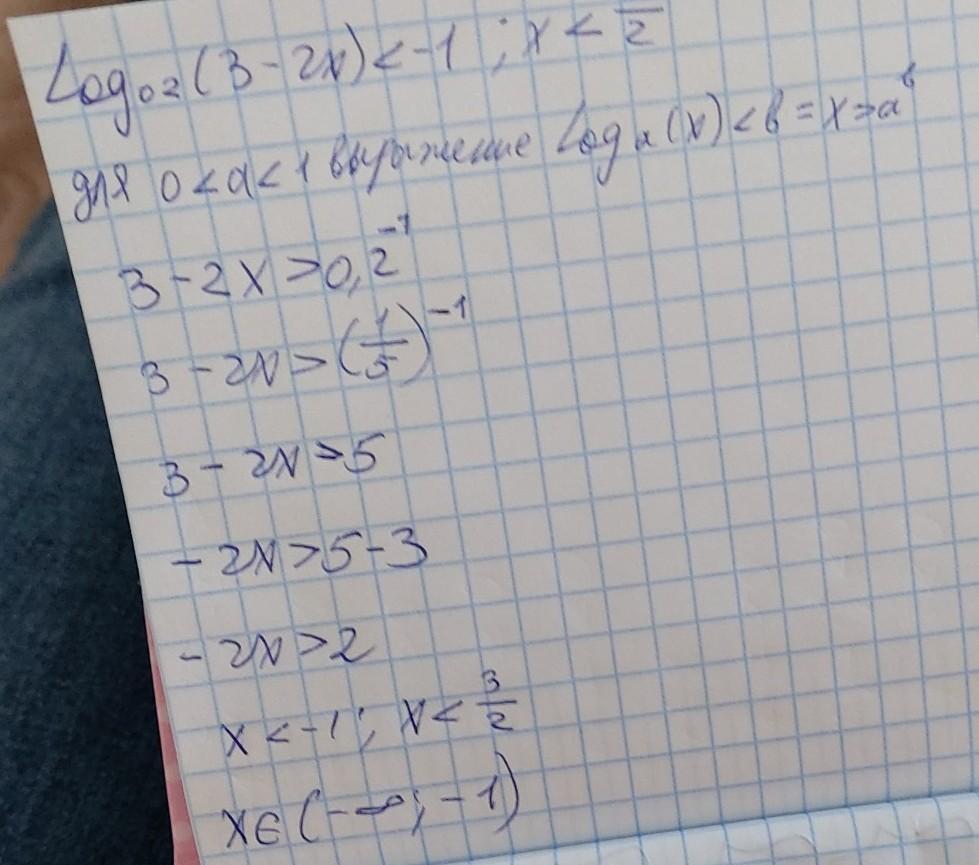 Log₀₂(3 - 2x) < -1 ; x < —/2
для 0 < a < 1 выражение Log a(x) < b = x > aᵇ
3 - 2x > 0,2⁻¹
3 - 2x > (1/5)⁻¹
3 - 2x > 5
- 2x > 5 - 3
- 2x > 2
x < -1 ; x < 3/2
x ∈ (-∞; -1)